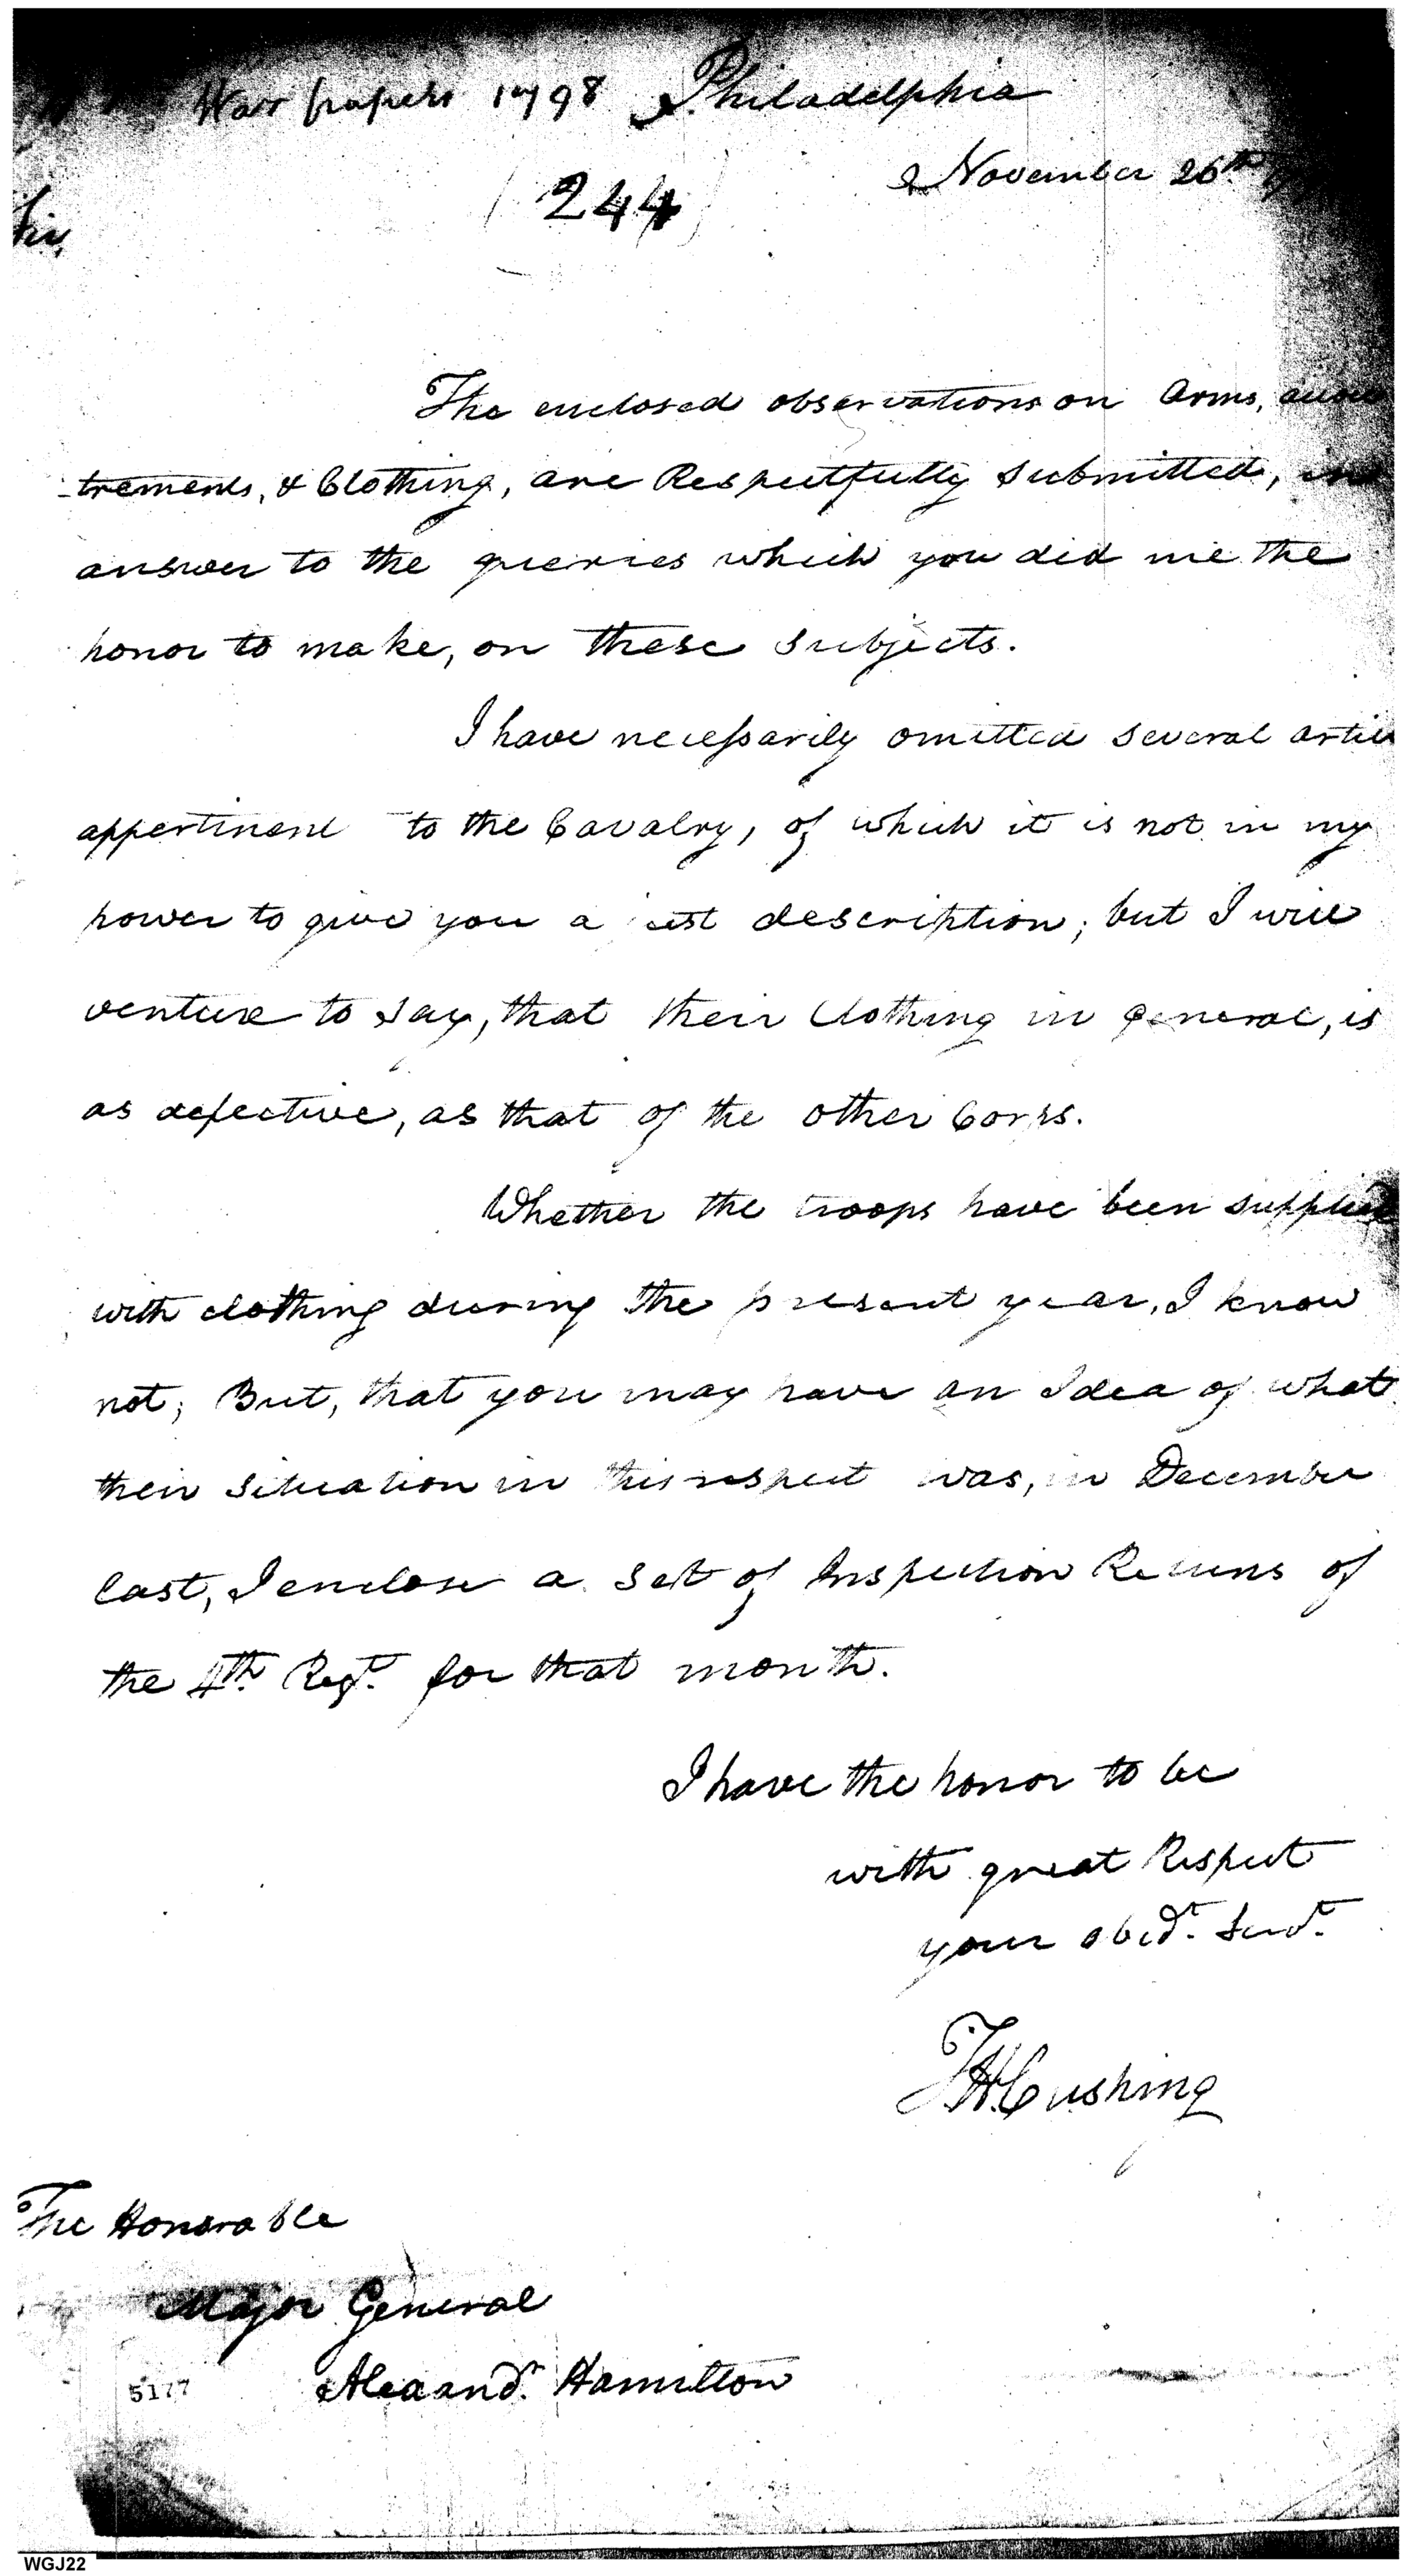 War papers 1798 Philadelphia
November 26th
244
Sir,
The enclosed observations on Arms, accou
-trements, & Clothing, are Respectfully submitted, in
answer to the queries which you did me the
honor to make, on these subjects.
I have necessarily omitted several artic
appertinent to the Cavalry, of which it is not in my
power to give you a just description; but I will
venture to say, that their Clothing in general, is
as defective, as that of the other Corps.
Whether the troops have been supplied
with clothing during the present year, I know
not; But, that you may have an Idea of what
their situation in this respect was, in December
last, I enclose a set of Inspection Returns of
the 4th. Regt. for that month.
I have the honor to be
with great Respect
your obedt. Servt.
T.H. Cushing
The Honorable
Major General
Alexandr. Hamilton
5177
WGJ22